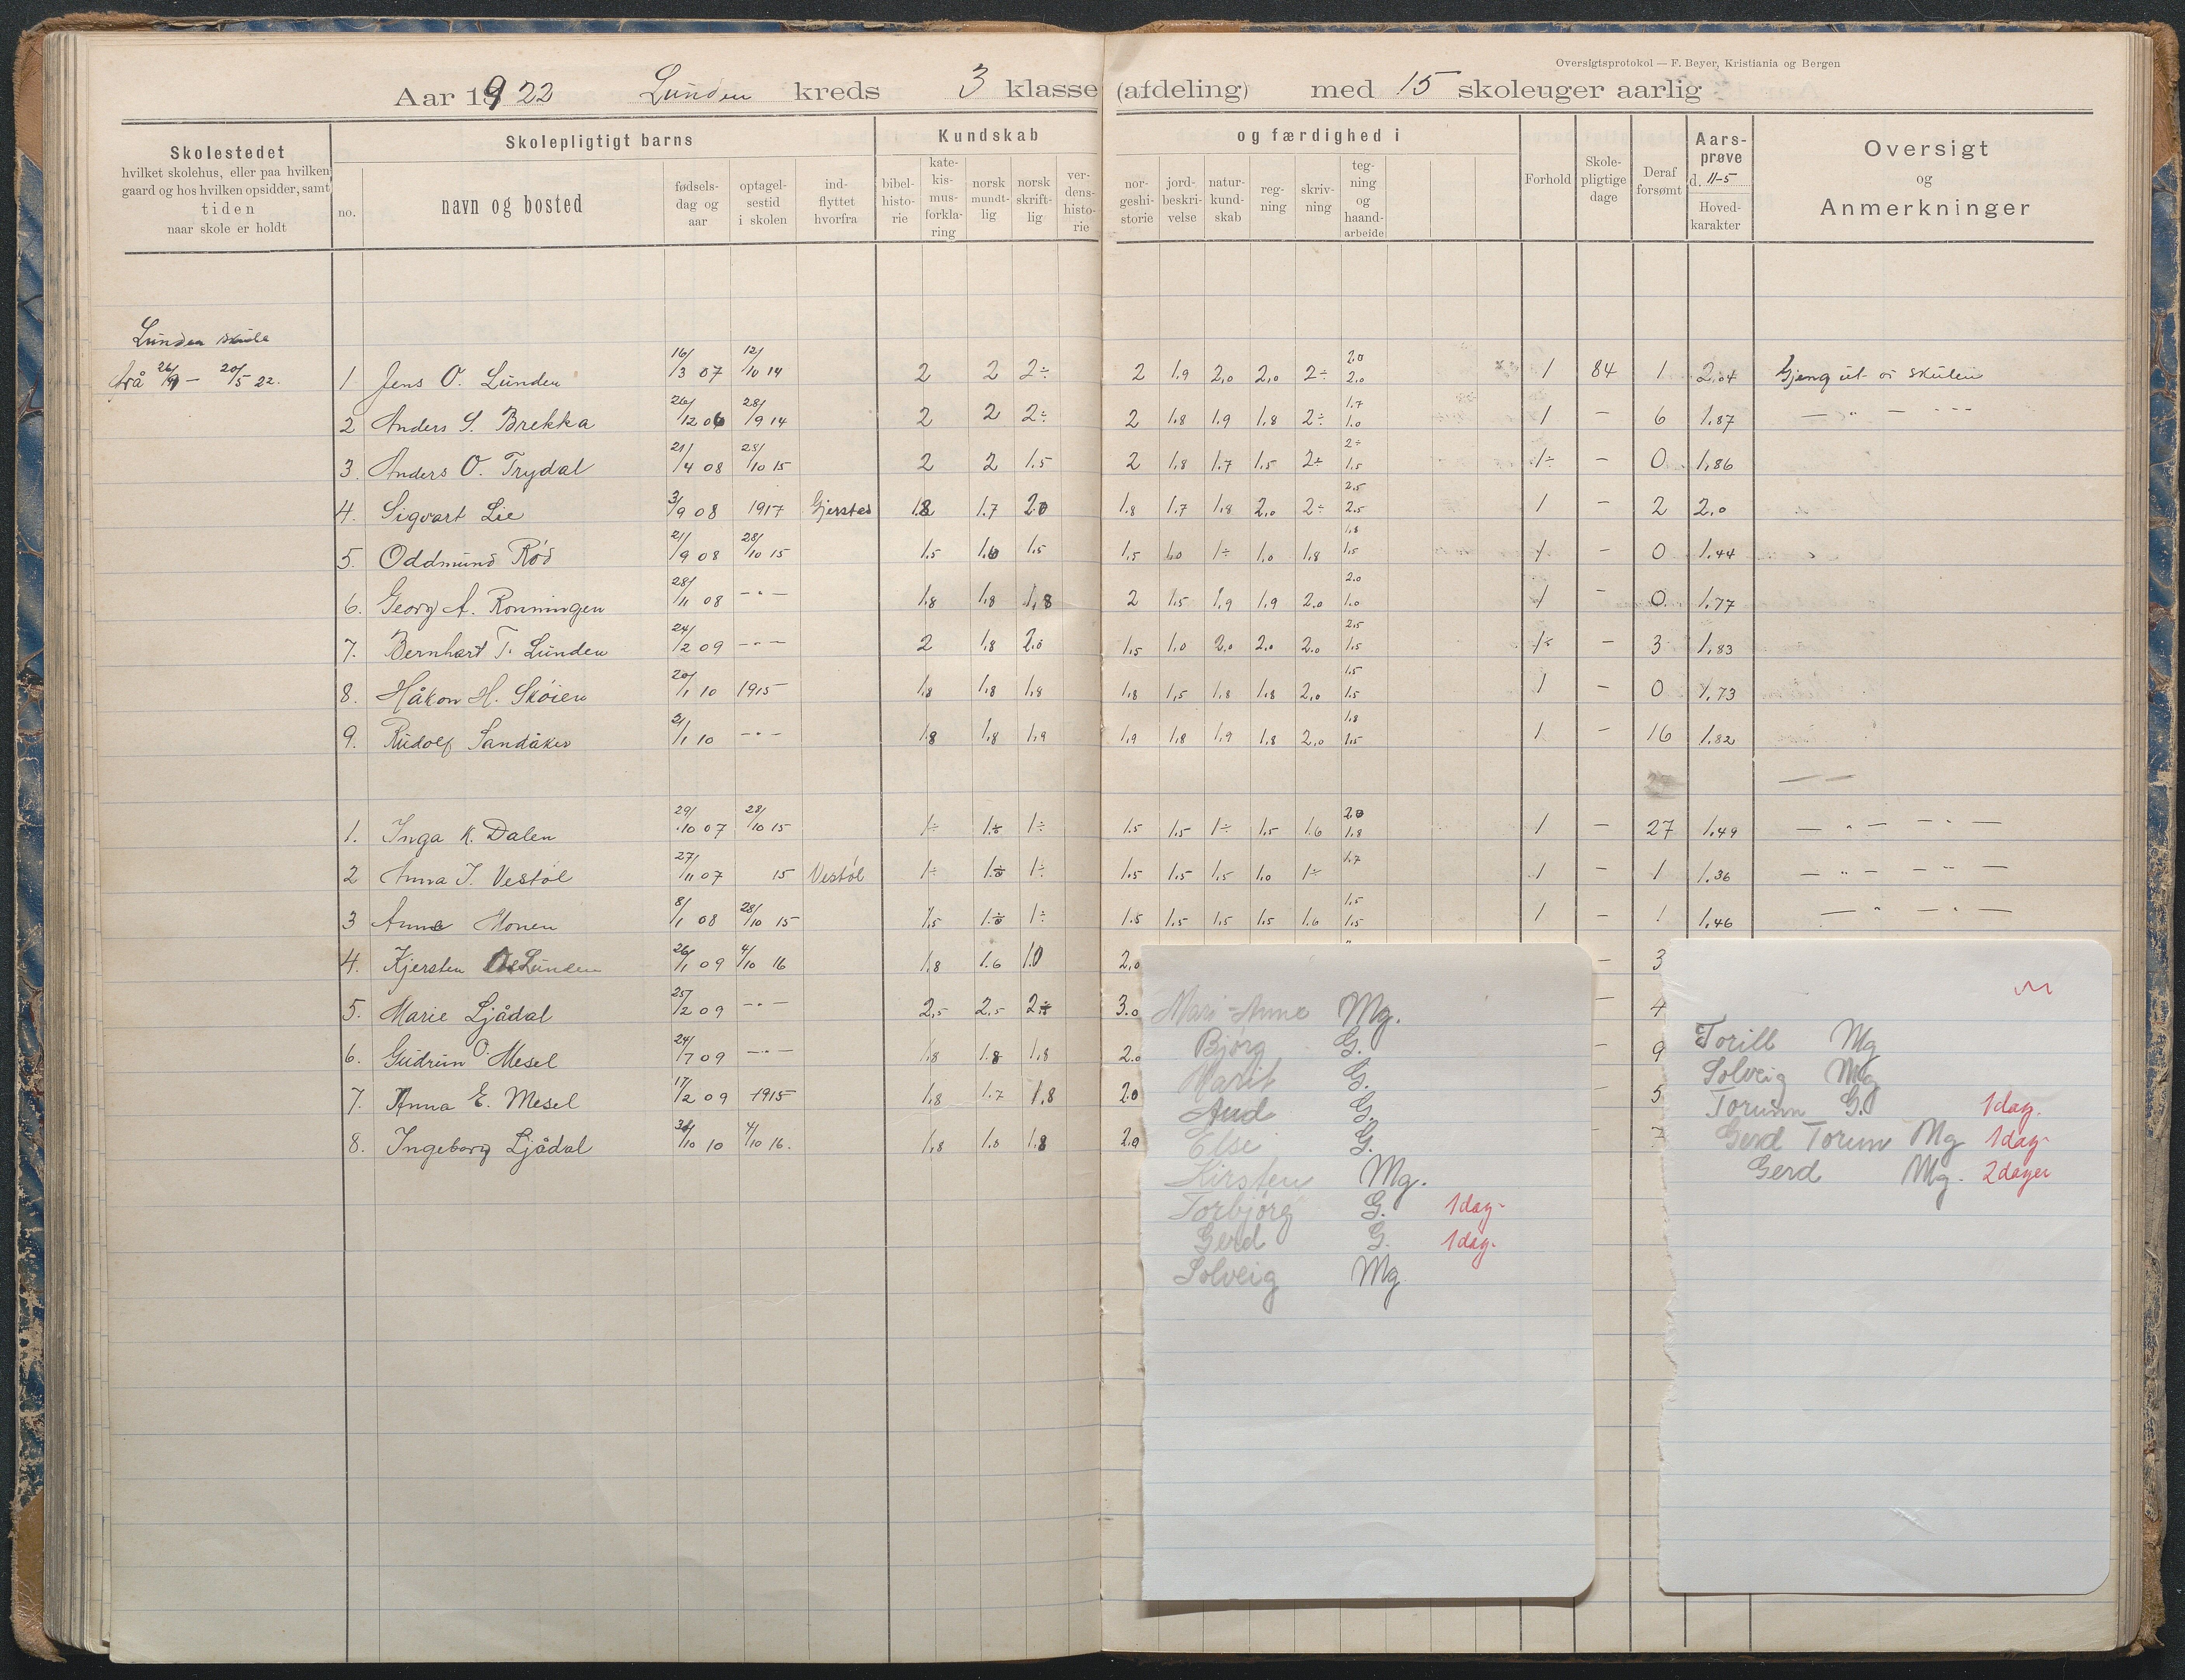 Oversigtsprotokol — F. Beyer, Kristiania og Bergen
Aar 1922 Lunden kreds 3 klasse (afdeling) med 15 skoleuger aarlig
Skolestedet
hvilket skolehus, eller paa hvilken
gaard og hos hvilken opsidder, samt
tiden
naar skole er holdt
Skolepligtigt barns
no.
navn og bosted
fødsels-
dag og
aar
optagel-
sestid
i skolen
ind-
flyttet
hvorfra
Kundskab og færdighed i
bibel-
histo-
rie
kate-
kis-
mus-
forkla-
ring
norsk
mundt-
lig
norsk
skrift-
lig
ver-
dens-
histo-
rie
nor-
geshi-
storie
jord-
beskri-
velse
natur-
kund-
skab
reg-
ning
skriv-
ning
teg-
ning
og
haand-
arbeide
Forhold
Skole-
pligtige
dage
Deraf
forsømt
Aars-
prøve
d. 11-5
Hoved-
karakter
Oversigt
og
Anmerkninger
Lunden skule
frå 26/9 — 20/5 22.
1 Jens O. Lunden 16/3 07 12/10 14 2 2 2÷ 2 1.9 2,0 2,0 2÷ 2.0 2.0 1 84 1 2,04 Gjeng ut or skulen
2 Anders S. Brekka 26/12 06 28/9 14 2 2 2÷ 2 1.8 1.9 1.8 2÷ 1.7 1.0 1 — 6 1,87 — " — " —
3. Anders O. Trydal 21/4 08 28/10 15 2 2 1.5 2 1.8 1.7 1.5 2÷ 2÷ 1.5 1÷ — 0 1,86
4. Sigvart Lie 3/9 08 1917 Gjerstad 1.8 1.7 2.0 1.8 1.7 1.8 2.0 2÷ 2.5 2.5 1 — 2 2,0
5. Oddmund Rød 21/9 08 28/10 15 1.5 1.6 1.5 1.5 1.0 1÷ 1.0 1.8 1.8 1.5 1 — 0 1,44
6. Georg A. Rønningen 28/11 08 — " — 1.8 1.8 1.8 2 1.5 1.9 1.9 2.0 2.0 1.0 1 — 0 1,77
7. Bernhart T. Lunden 24/2 09 — " — 2 1.8 2.0 1.5 1.0 2.0 2.0 2.0 2.5 1.5 1÷ — 3 1,83
8. Håkon H. Skøien 20/1 10 1915 1.8 1.8 1.8 1.8 1.5 1.8 1.8 2.0 1.5 1.5 1 — 0 1,73
9. Rudolf Sandåker 2/1 10 — " — 1.8 1.8 1.9 1.9 1.8 1.9 1.8 2.0 1.8 1.5 1 — 16 1,82
1. Inga K. Dalen 29/10 07 28/10 15 1÷ 1÷ 1÷ 1.5 1.5 1÷ 1.5 1.6 2.0 1.8 1 — 27 1,49 — " — " —
2 Anna J. Vestøl 27/11 07 15 Vestøl 1÷ 1÷ 1÷ 1.5 1.5 1.5 1.0 1÷ 1.7 1 — 1 1.36 — " — " —
3 Anna Monen 8/1 08 28/10 15 1.5 1÷ 1÷ 1.5 1.5 1.5 1.5 1.6 1.5 1.5 1 — 1 1,46 — " — " —
4. Kjersten Lunden 26/1 09 4/10 16 1.8 1.6 1.0 2,0 — 3
5. Marie Ljådal 25/2 09 — " — 2,5 2,5 2÷ 3.0 — 4
6. Gudrun O. Mesel 24/7 09 — " — 1.8 1.8 1.8 2.0 — 9
7. Anna E. Mesel 17/2 09 1915 1.8 1.7 1.8 2.0 — 5
8. Ingeborg Ljådal 10 10 4/10 16. 1.8 1.0 1.8 2.0 — 7
Mari-Anne Mg.
Bjørg G.
Marit G.
Aud G.
Else G.
Kirsten Mg.
Torbjørg G. 1 dag.
Gerd G. 1 dag.
Solveig Mg
Torill Mg
Solveig Mg
Torunn G. 1 dag.
Gerd Torunn Mg 1 dag.
Gerd Mg. 2 dager